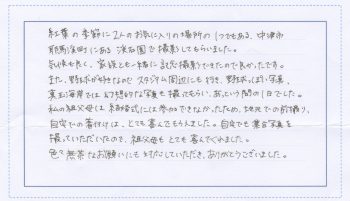 紅葉の季節に2人のお気に入りの場所の1つである、中津市
耶馬溪町にある渓石園で撮影してもらいました。
気候も良く、家族とも一緒に記念撮影できたので良かったです。
また、野球が好きなのでスタジアム周辺にも行き、野球っぽい写真、
真玉海岸では幻想的な写真も撮ってもらい、あっという間の1日でした。
私の祖父母は結婚式には参加できなかったため、地元での前撮り、
自宅での着付けは、とても喜んでもらえました。自宅でも集合写真を
撮っていただいたので、祖父母もとても喜んでくれました。
色々無茶なお願いにも対応していただき、ありがとうございました。